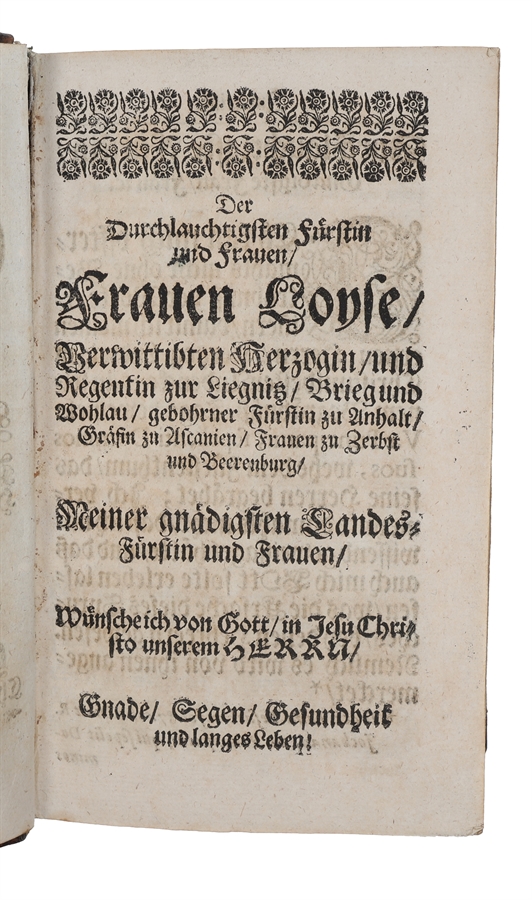 Der
Durchlauchtigsten Fürstin
und Frauen/
Frauen Loyse/
Verwittibten Herzogin/und
Regentin zur Liegnitz/ Brieg und
Wohlau/ gebohrner Fürstin zu Anhalt/
Gräfin zu Ascanien/ Frauen zu Zerbst
und Beerenburg/
Meiner gnädigsten Landes-
Fürstin und Frauen/
Wünsche ich von Gott/ in Jesu Chri-
sto unserem HERRN/
Gnade/ Segen/ Gesundheit
und langes Leben!